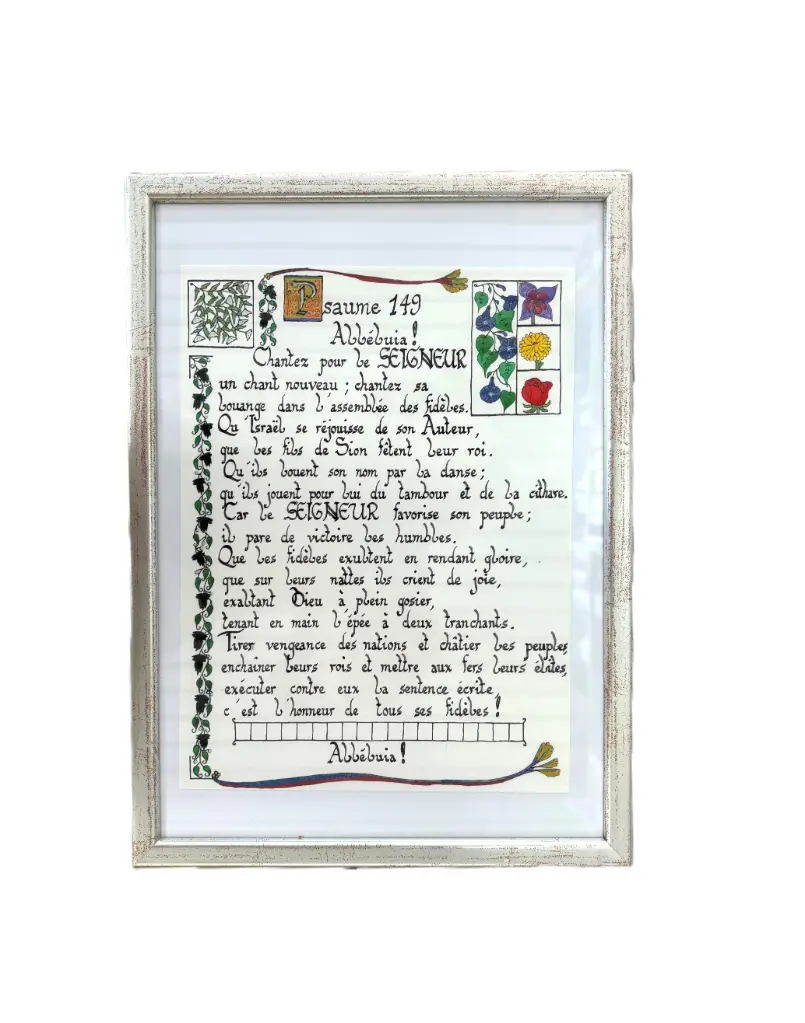 Psaume 149
Alléluia !
Chantez pour le SEIGNEUR
un chant nouveau ; chantez sa
louange dans l'assemblée des fidèles.
Qu'Israël se réjouisse de son Auteur,
que les fils de Sion fêtent leur roi.
Qu'ils louent son nom par la danse ;
qu'ils jouent pour lui du tambour et de la cithare.
Car le SEIGNEUR favorise son peuple ;
il pare de victoire les humbles.
Que les fidèles exultent en rendant gloire,
que sur leurs nattes ils crient de joie,
exaltant Dieu à plein gosier,
tenant en main l'épée à deux tranchants.
Tirer vengeance des nations et châtier les peuples,
enchainer leurs rois et mettre aux fers leurs élites,
exécuter contre eux la sentence écrite,
c'est l'honneur de tous ses fidèles !
Alléluia !